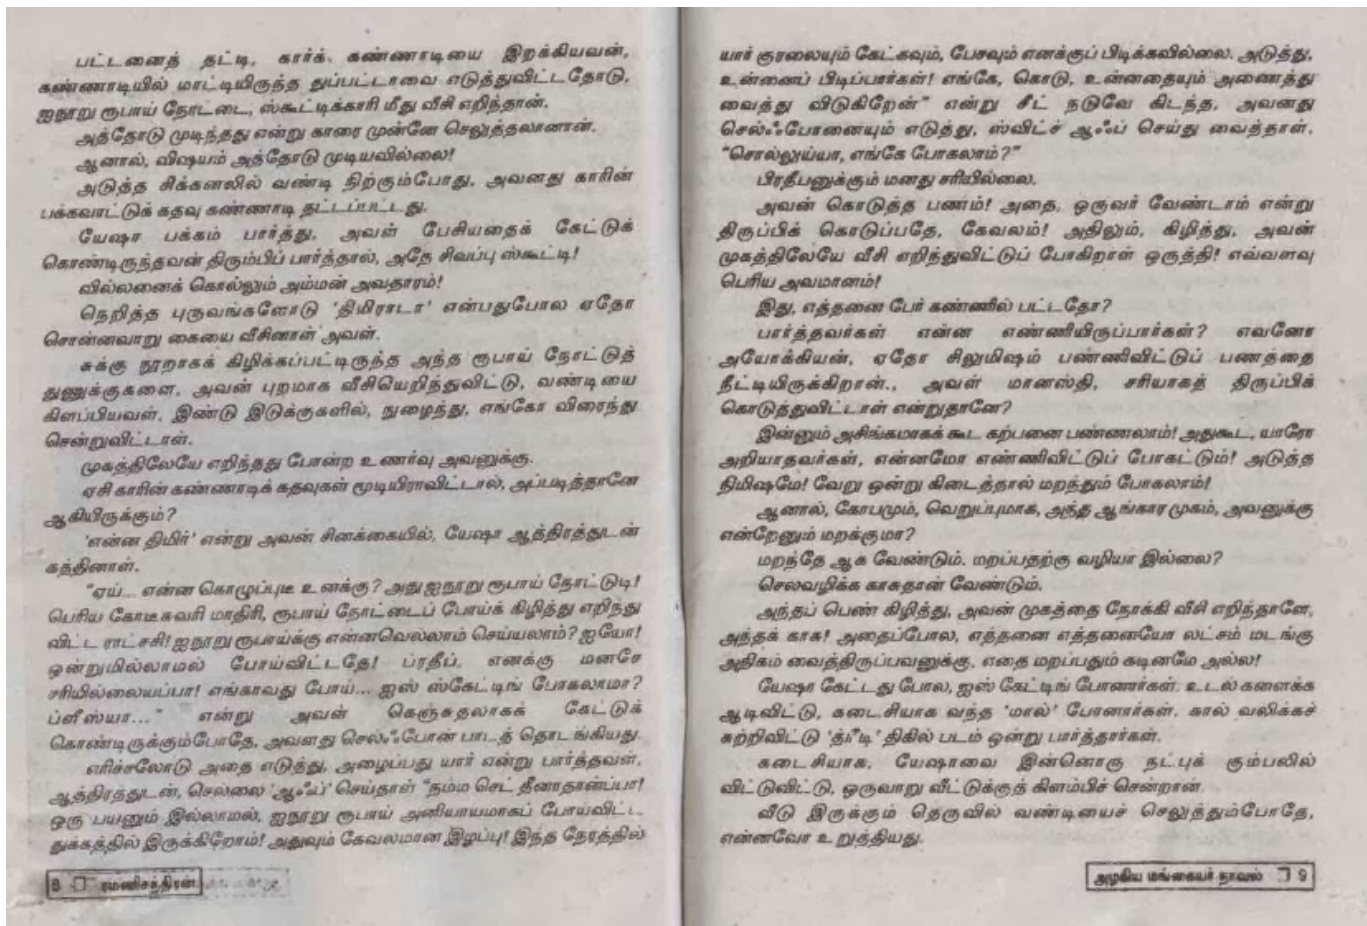 பட்டனைத் தட்டி, கார்க் கண்ணாடியை இறக்கியவன்,
கண்ணாடியில் மாட்டியிருந்த துப்பட்டாவை எடுத்துவிட்டதோடு,
ஐநூறு ரூபாய் நோட்டை, ஸ்கூட்டிக்காரி மீது வீசி எறிந்தான்.
அத்தோடு முடிந்தது என்று காரை முன்னே செலுத்தலானான்.
ஆனால், விஷயம் அத்தோடு முடியவில்லை!
அடுத்த சிக்கனலில் வண்டி நிற்கும்போது, அவனது காரின்
பக்கவாட்டுக் கதவு கண்ணாடி தட்டப்பட்டது.
யேஷா பக்கம் பார்த்து, அவள் பேசியதைக் கேட்டுக்
கொண்டிருந்தவன் திரும்பிப் பார்த்தால், அதே சிவப்பு ஸ்கூட்டி!
வில்லனைக் கொல்லும் அம்மன் அவதாரம்!
நெறித்த புருவங்களோடு 'திமிராடா' என்பதுபோல ஏதோ
சொன்னவாறு கையை வீசினாள் அவள்.
சுக்கு நூறாகக் கிழிக்கப்பட்டிருந்த அந்த ரூபாய் நோட்டுத்
துணுக்குகளை, அவன் புறமாக வீசியெறிந்துவிட்டு, வண்டியை
கிளப்பியவள், இண்டு இடுக்குகளில், நுழைந்து, எங்கோ விரைந்து
சென்றுவிட்டாள்.
முகத்திலேயே எறிந்தது போன்ற உணர்வு அவனுக்கு.
ஏசி காரின் கண்ணாடிக் கதவுகள் மூடியிராவிட்டால், அப்படித்தானே
ஆகியிருக்கும்?
'என்ன திமிர்' என்று அவன் சினக்கையில், யேஷா ஆத்திரத்துடன்
கத்தினாள்.
"ஏய்... என்ன கொழுப்புடீ உனக்கு? அது ஐநூறு ரூபாய் நோட்டுடி!
பெரிய கோடீசுவரி மாதிரி, ரூபாய் நோட்டைப் போய்க் கிழித்து எறிந்து
விட்ட ராட்சசி! ஐநூறு ரூபாய்க்கு என்னவெல்லாம் செய்யலாம்? ஐயோ!
ஒன்றுமில்லாமல் போய்விட்டதே! ப்ரதீப், எனக்கு மனசே
சரியில்லையப்பா! எங்காவது போய்... ஐஸ் ஸ்கேட்டிங் போகலாமா?
ப்ளீஸ்யா..." என்று அவன் கெஞ்சுதலாகக் கேட்டுக்
கொண்டிருக்கும்போதே, அவளது செல்ஃபோன் பாடத் தொடங்கியது.
எரிச்சலோடு அதை எடுத்து, அழைப்பது யார் என்று பார்த்தவள்,
ஆத்திரத்துடன், செல்லை 'ஆஃப்' செய்தாள் "நம்ம செட் தீனாதான்ப்பா!
ஒரு பயனும் இல்லாமல், ஐநூறு ரூபாய் அனியாயமாகப் போய்விட்ட
துக்கத்தில் இருக்கிறோம்! அதுவும் கேவலமான இழப்பு! இந்த நேரத்தில்
8 ரமணிசந்திரன்
யார் குரலையும் கேட்கவும், பேசவும் எனக்குப் பிடிக்கவில்லை. அடுத்து,
உன்னைப் பிடிப்பார்கள்! எங்கே, கொடு, உன்னதையும் அணைத்து
வைத்து விடுகிறேன்" என்று சீட் நடுவே கிடந்த, அவனது
செல்ஃபோனையும் எடுத்து, ஸ்விட்ச் ஆஃப் செய்து வைத்தாள்.
"சொல்லுய்யா, எங்கே போகலாம்?"
பிரதீபனுக்கும் மனது சரியில்லை.
அவன் கொடுத்த பணம்! அதை, ஒருவர் வேண்டாம் என்று
திருப்பிக் கொடுப்பதே, கேவலம்! அதிலும், கிழித்து, அவன்
முகத்திலேயே வீசி எறிந்துவிட்டுப் போகிறாள் ஒருத்தி! எவ்வளவு
பெரிய அவமானம்!
இது, எத்தனை பேர் கண்ணில் பட்டதோ?
பார்த்தவர்கள் என்ன எண்ணியிருப்பார்கள்? எவனோ
அயோக்கியன், ஏதோ சிலுமிஷம் பண்ணிவிட்டுப் பணத்தை
நீட்டியிருக்கிறான்., அவள் மானஸ்தி, சரியாகத் திருப்பிக்
கொடுத்துவிட்டாள் என்றுதானே?
இன்னும் அசிங்கமாகக் கூட கற்பனை பண்ணலாம்! அதுகூட, யாரோ
அறியாதவர்கள், என்னமோ எண்ணிவிட்டுப் போகட்டும்! அடுத்த
நிமிஷமே! வேறு ஒன்று கிடைத்தால் மறந்தும் போகலாம்!
ஆனால், கோபமும், வெறுப்புமாக, அந்த ஆங்கார முகம், அவனுக்கு
என்றேனும் மறக்குமா?
மறந்தே ஆக வேண்டும். மறப்பதற்கு வழியா இல்லை?
செலவழிக்க காசுதான் வேண்டும்.
அந்தப் பெண் கிழித்து, அவன் முகத்தை நோக்கி வீசி எறிந்தாளே,
அந்தக் காசு! அதைப்போல, எத்தனை எத்தனையோ லட்சம் மடங்கு
அதிகம் வைத்திருப்பவனுக்கு, எதை மறப்பதும் கடினமே அல்ல!
யேஷா கேட்டது போல, ஐஸ் கேட்டிங் போனார்கள். உடல் களைக்க
ஆடிவிட்டு, கடைசியாக வந்த 'மால்' போனார்கள். கால் வலிக்கச்
சுற்றிவிட்டு 'த்ரீடி' திகில் படம் ஒன்று பார்த்தார்கள்.
கடைசியாக, யேஷாவை இன்னொரு நட்புக் கும்பலில்
விட்டுவிட்டு, ஒருவாறு வீட்டுக்குத் கிளம்பிச் சென்றான்.
வீடு இருக்கும் தெருவில் வண்டியைச் செலுத்தும்போதே,
என்னவோ உறுத்தியது.
அழகிய மங்கையர் நாவல் 9